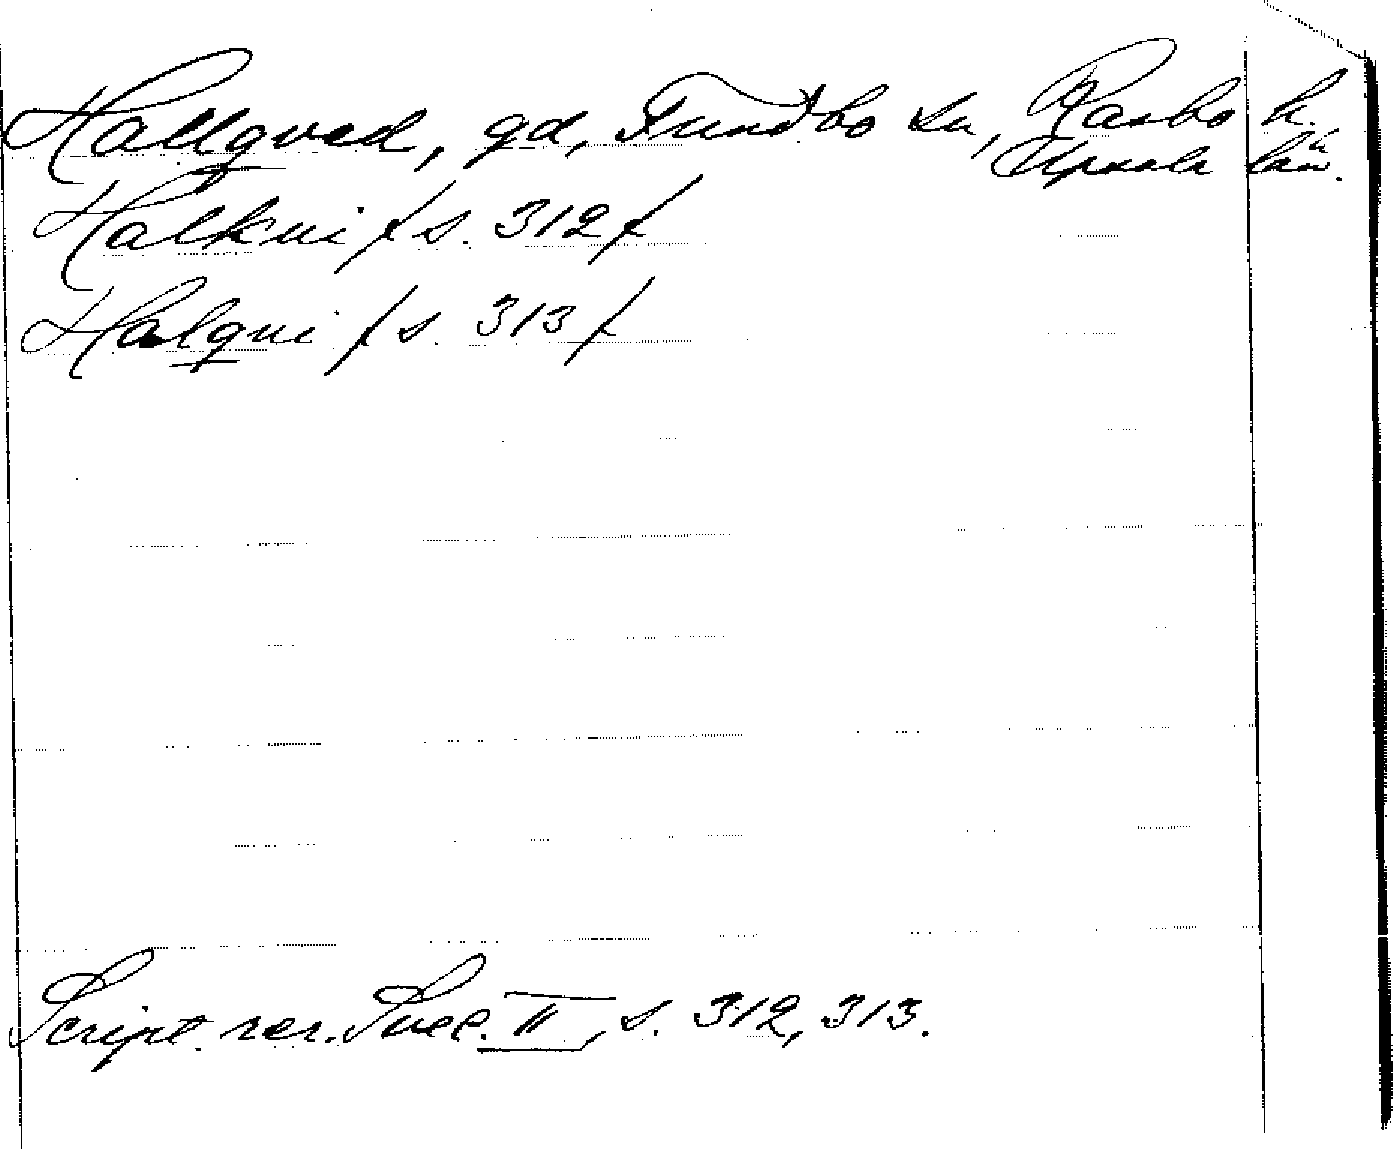 Hallqved, gd, Fundbo sn, Rasbo h.
Upsala län.
Halkui /s. 312/
Halqui /s. 313/
Script. rer. Suec. II, s. 312, 313.